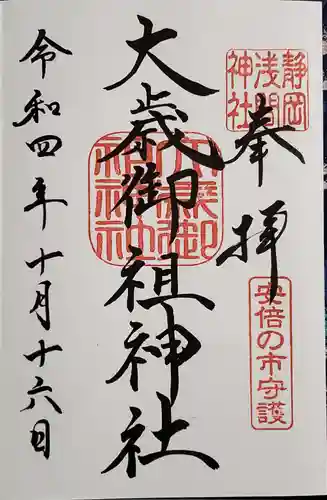 奉拝
静岡浅間神社
安倍の市守護
大歳御祖神社
大歳御祖神社
令和四年十月十六日